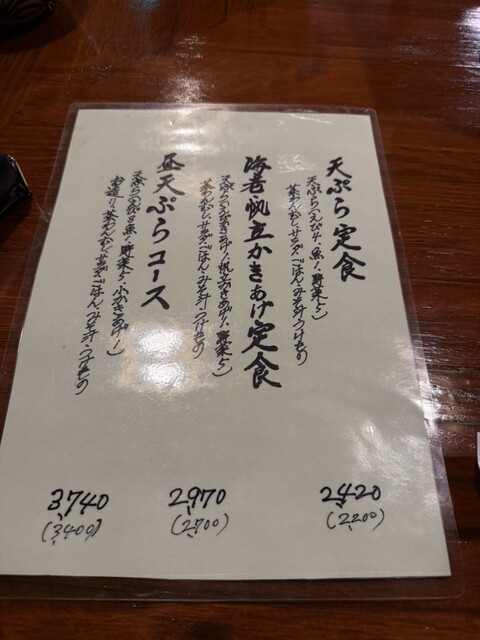 天ぷら定食
天ぷら(えび4、魚1、野菜5)
茶わんむし・サラダ・ごはん・みそ汁・つけもの
2,420
(2,200)
海老・帆立かきあげ定食
天ぷら(えびかきあげ1、帆立かきあげ1、野菜5)
茶わんむし・サラダ・ごはん・みそ汁・つけもの
2,970
(2,700)
昼天ぷらコース
お造り・茶わんむし・サラダ・ごはん・みそ汁・つけもの
3,740
(3,400)